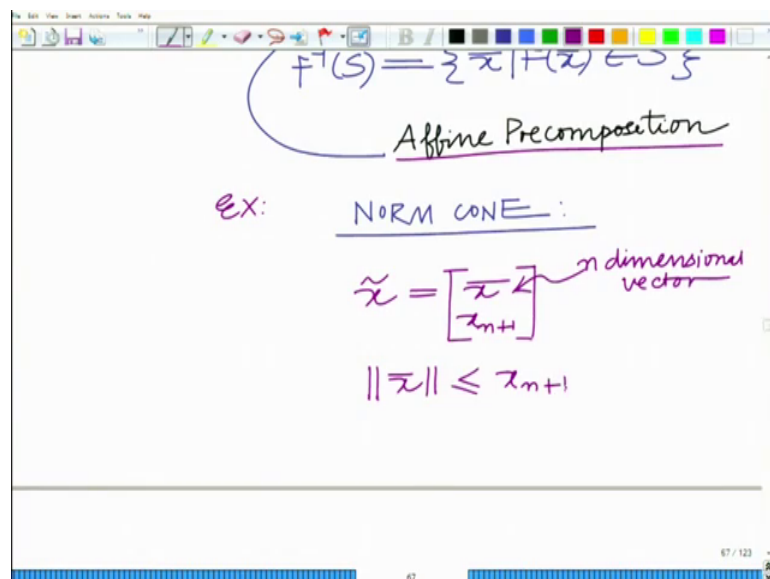 File Edit View Insert Actions Tools Help
B I
F⁻¹(S) = { x̄ | F(x̄) ∈ S }
Affine Precomposition
EX: NORM CONE :
x̃ = [ x̄ x_{n+1} ] n dimensional vector
||x̄|| ≤ x_{n+1}
67 / 123
67